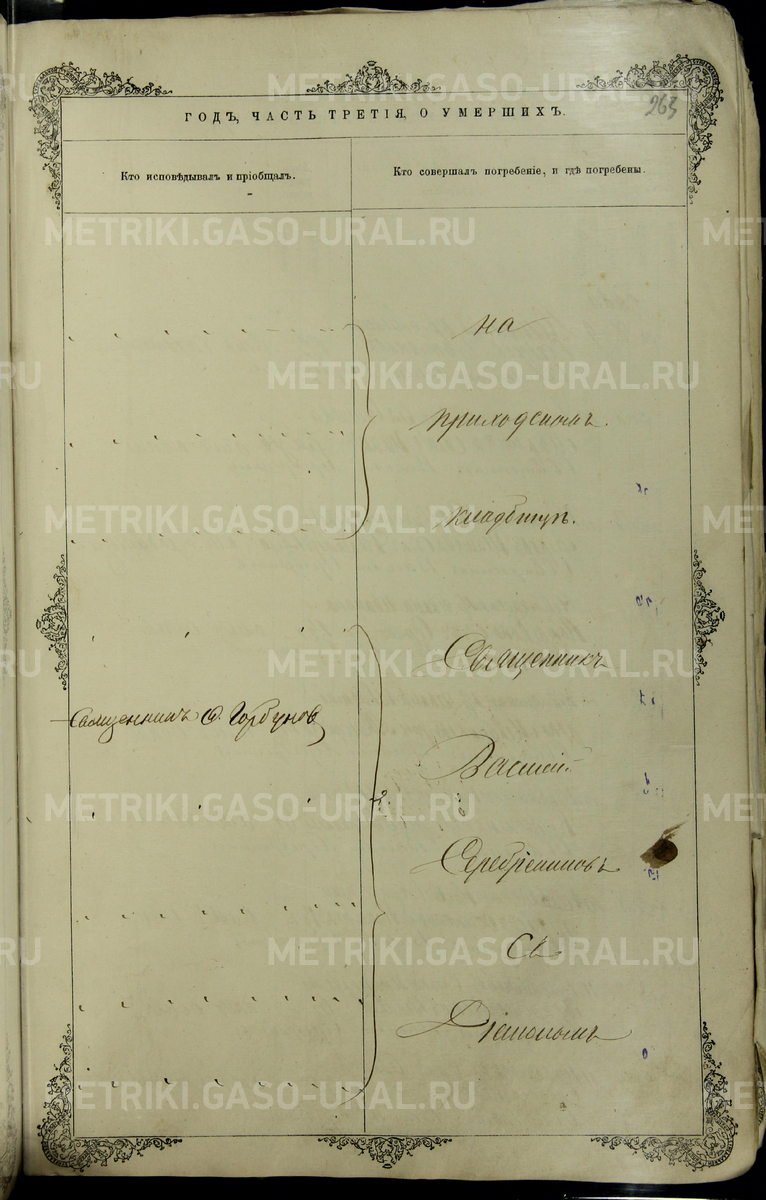 263
ГОДЪ, ЧАСТЬ ТРЕТІЯ, О УМЕРШИХЪ.
Кто исповѣдывалъ и пріобщалъ.
Кто совершалъ погребеніе, и гдѣ погребены.
на
приходскомъ
кладбищѣ.
Священникъ
Священникъ Горбуновъ
Василій
Серебрениковъ
съ
Діакономъ
METRIKI.GASO-URAL.RU